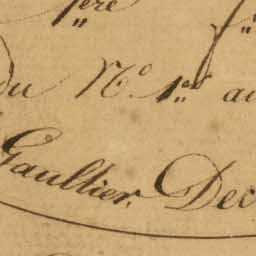 ère
du N.º 1.er au
Gaultier. Dec